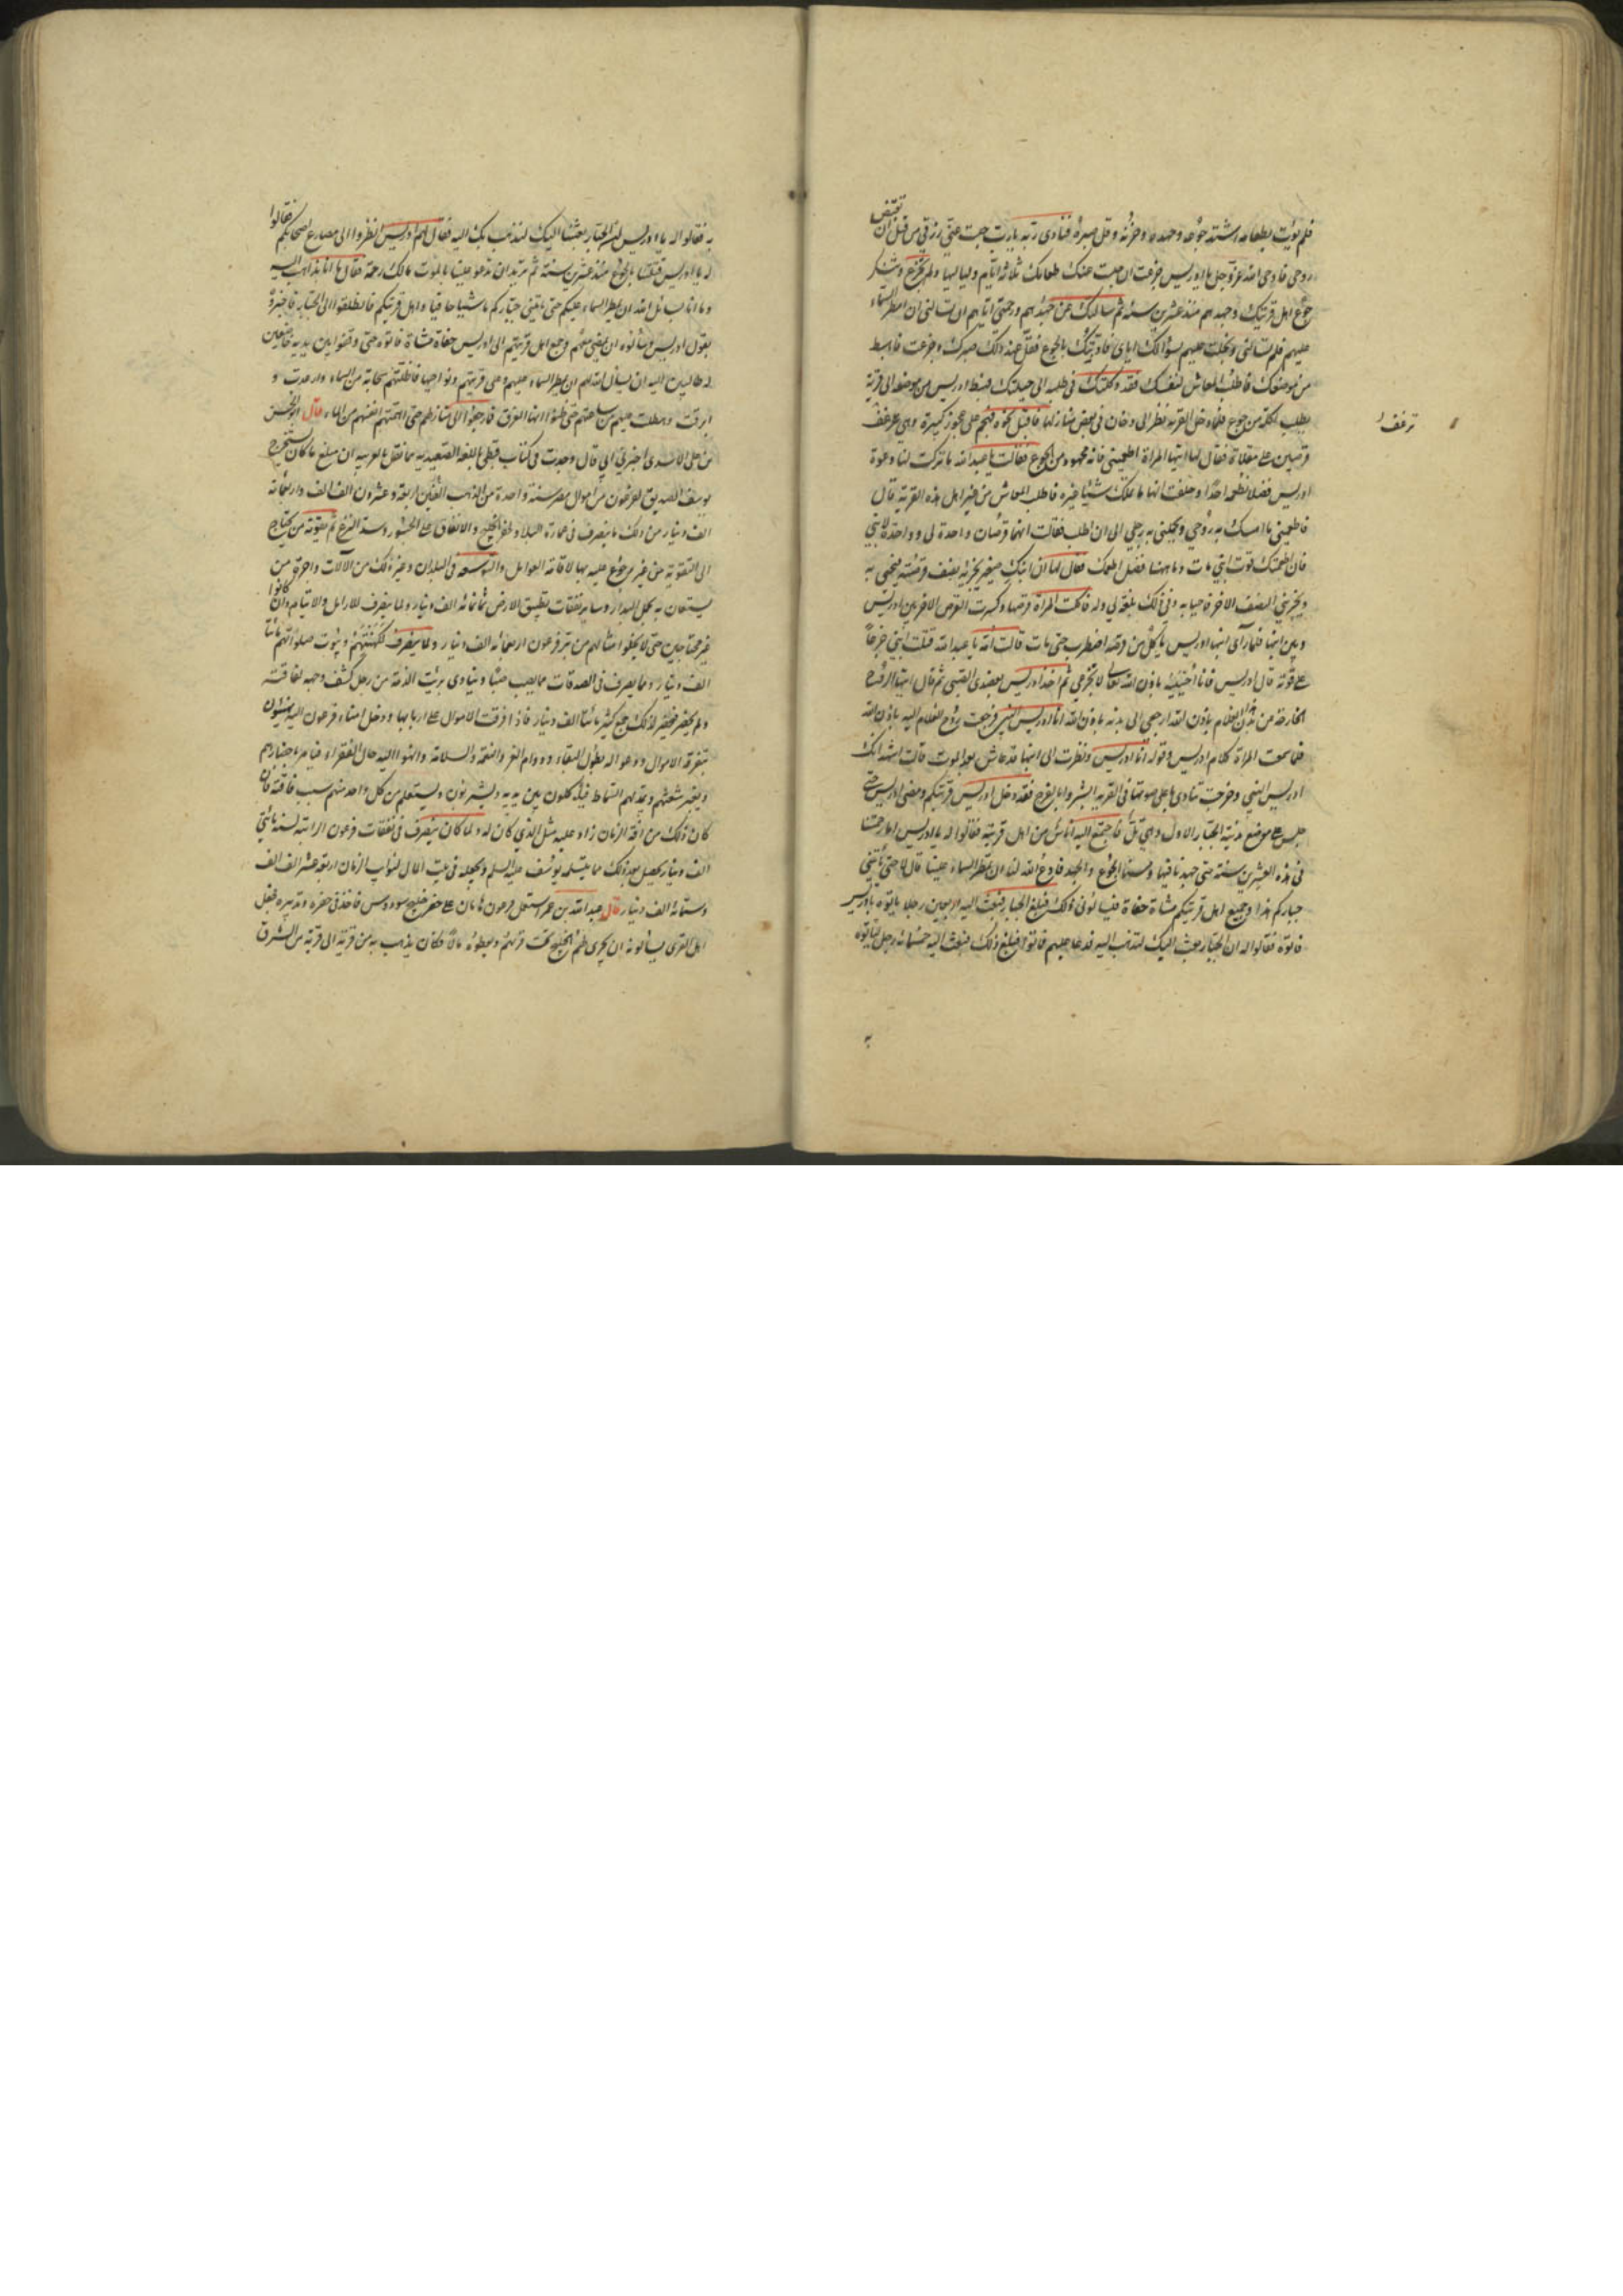 فلم يؤت بطعامه اشتد جوعه وجهده وحزنه وقل صبره فنادى ربه يا رب حبست عني رزقي من قبل ان تقبض
روحي فاوحى الله عز وجل يا ادريس جزعت ان حبست عنك طعامك ثلاثة ايام ولياليها ولم تجزع
جوع اهل قريتك وجهدهم منذ عشرين سنة ثم سالتك عن جهدهم ورحمتي اياهم ان تسالني ان امطر السماء
عليهم فلم تسالني وبخلت عليهم بسؤالك اياي فادبتك بالجوع فقل عند ذلك صبرك وجزعت فاهبط
من موضعك فاطلب المعاش لنفسك فقد وكلتك في طلبه الى حيلتك فهبط ادريس من موضعه الى قرية
يطلب اكلة من جوع فلما دخل القرية نظر الى دخان في بعض منازلها فاقبل نحوه فهجم على عجوز كبيرة وهي ترغف
ترغف
قرصين على مقلاة فقال لها ايتها المراة اطعميني فانه مجهود من الجوع فقالت يا عبد الله ما تركت لنا دعوة
ادريس فضلا نطعمه احدا وحلفت انها ما تملك شيئا غيره فاطلب المعاش من غير اهل هذه القرية قال
فاطعميني ما امسك به روحي وتحملني به رجلي الى ان اطلب فقالت انهما قرصان واحدة لي وواحدة لابني
فان اطعمتك قوت ابني مات وما ههنا فضل اطعمك فقال لها ان ابنك صغير يجزيه نصف قرصة فيحيى به
ويجزيني النصف الاخر فاحيا به وفي ذلك بلغة لي وله فاكلت المراة قرصها وكسرت القرص الاخر بين ادريس
وبين ابنها فلما راى ابنها ادريس ياكل من قرصه اضطرب حتى مات قالت امه يا عبد الله قتلت ابني جزعا
على قوته قال ادريس فانا احييه باذن الله تعالى لا تجزعي ثم اخذ ادريس بعضدي الصبي ثم قال ايتها الروح
الخارجة من بدن الغلام باذن الله ارجعي الى بدنه باذن الله انا ادريس النبي فرجعت روح الغلام اليه باذن الله
فلما سمعت المراة كلام ادريس وقوله انا ادريس ونظرت الى ابنها قد عاش بعد الموت قالت اشهد انك
ادريس النبي وخرجت تنادي باعلى صوتها في القرية ابشروا بالفرج فقد دخل ادريس قريتكم ومضى ادريس حتى
جلس على موضع مدينة الجبار الاول وهي تل فاجتمع اليه اناس من اهل قريته فقالوا له يا ادريس اما رحمتنا
في هذه العشرين سنة حتى جهدنا فيها ومسنا الجوع والجهد فادع الله لنا ان يمطر السماء علينا قال لا حتى ياتيني
جباركم هذا وجميع اهل قريتكم مشاة حفاة فيسالوني ذلك فبلغ الجبار فبعث اليه اربعين رجلا ياتوه بادريس
فاتوه فقالوا له ان الجبار بعث اليك لتذهب اليه فدعا عليهم فماتوا فبلغ ذلك فبعث اليه خمسمائة رجل لياتوه
به
به فقالوا له يا ادريس ان الجبار بعثنا اليك لنذهب بك اليه فقال لهم ادريس انظروا الى مصارع اصحابكم فقالوا
له يا ادريس قتلتنا بالجوع منذ عشرين سنة ثم تريد ان تدعو علينا بالموت ما لك رحمة فقال ما انا بذاهب اليه
وما انا بسائل الله ان يمطر السماء عليكم حتى ياتيني جباركم ماشيا حافيا واهل قريتكم فانطلقوا الى الجبار فاخبروه
بقول ادريس وسالوه ان يمضي معهم وجميع اهل قريتهم الى ادريس حفاة مشاة فاتوه حتى وقفوا بين يديه خاضعين
له طالبين اليه ان يسال الله لهم ان يمطر السماء عليهم وعلى قريتهم ونواحيها فاظلتهم سحابة من السماء وارعدت و
ابرقت وهطلت عليهم من ساعتهم حتى ظنوا انها الغرق فما رجعوا الى منازلهم حتى اهمتهم انفسهم من الماء قال ابو الحسن
بن علي الاسدي اخبرني ابي قال وجدت في كتاب قبطي باللغة الصعيدية مما نقل بالعربية ان مبلغ ما كان يستخرج
يوسف الصديق لفرعون من اموال مصر سنة واحدة من الذهب العين اربعة وعشرون الف الف واربعمائة
الف دينار من ذلك ما ينصرف في عمارة البلاد لحفر الخليج والانفاق على الجسور وسد الترع ثم تقوية من يحتاج
الى التقوية من غير رجوع عليه بها لاقامة العوامل والتوسعة في البلدان وغير ذلك من الآلات واجرة من
يستعان به لحمل البذار وساير نفقات تطبيق الارض ثمانمائة الف دينار ولما ينصرف للارامل والايتام وان كانوا
غير محتاجين حتى لا يخلوا امثالهم من بر فرعون اربعمائة الف دينار ولما ينصرف لكهنتهم وبيوت صلواتهم مائتا
الف دينار ومما يصرف في الصدقات مما يصب صبا وينادى برئت الذمة من رجل كشف وجهه لفاقته
ولم يحضر فيحضر لذلك جمع كثير مائتا الف دينار فاذا فرقت الاموال على اربابها ودخل امناء فرعون اليه يهنئونه
بتفرقة الاموال ودعوا له بطول البقاء ودوام العز والنعمة والسلامة وانهوا اليه حال الفقراء فيامر باحضارهم
ويغير شعثهم ويمد لهم السماط فياكلون بين يديه ويشربون ويستعلم من كل واحد منهم سبب فاقته فان
كان ذلك من آفة الزمان زاد عليه مثل الذي كان له ولما كان ينصرف في نفقات فرعون الراتبة لسنة مائتي
الف دينار يحصل بعد ذلك مما يتسلمه يوسف عليه السلم ويجعله في بيت المال لنوايب الزمان اربعة عشر الف الف
وستمائة الف دينار قال عبد الله بن عمر استعمل فرعون هامان على حفر خليج سردوس فاخذ في حفره وتدبيره فجعل
اهل القرى يسالونه ان يجري لهم الخليج تحت قريتهم ويعطوه مالا فكان يذهب به من قرية الى قرية من الشرق